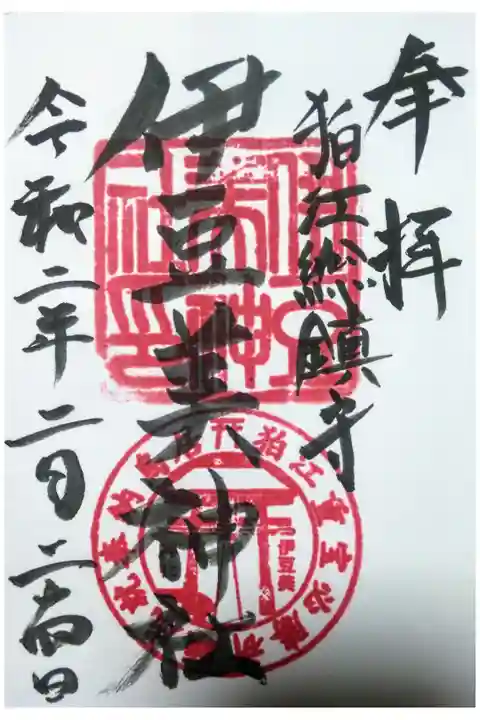 奉拝
狛江総鎮守
伊豆美神社
令和二年二月二十四日
伊豆美神社印
伊豆美